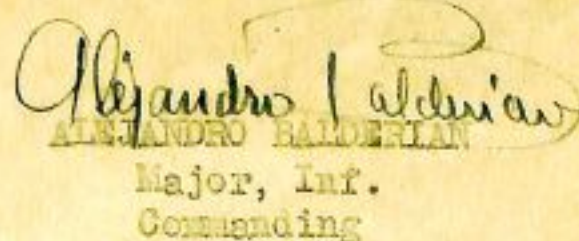 Alejandro Balderian
ALEJANDRO BALDERIAN
Major, Inf.
Commanding